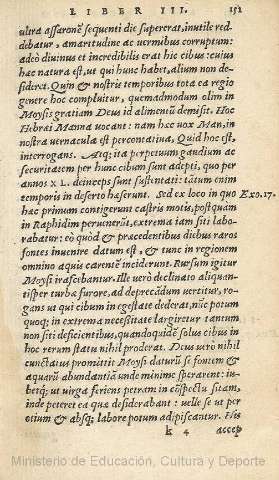 LIBER III. 151
ultra assaronẽ sequenti die supererat, inutile red-
debatur, amaritudine ac uermibus corruptum:
adeò diuinus et incredibilis erat hic cibus: cuius
hac natura est, ut qui hunc habet, alium non de-
siderat. Quin & nostris temporibus tota ea regio
genere hoc compluitur, quemadmodum olim in
Moysis gratiam Deus id alimentũ demisit. Hoc
Hebræi Manna uocant: nam hæc uox Man, in
nostra uernacula est percontatiua, Quid hoc est,
interrogans. Atq; ita perpetuum gaudium ac
securitatem per hunc cibum sunt adepti, quo per
annos x L. deinceps sunt sustentati: tãtum enim
temporis in deserto hæserunt. Sed ex loco in quo Exo.17.
hac primum contigerunt castris motis, postquam
in Raphidim peruenerũt, extrema iam siti labo-
rabatur: eò quòd & præcedentibus diebus raros
fontes inuenire datum est, & tunc in regionem
omnino aquis carentẽ inciderunt. Rursum igitur
Moysi irascebantur. Ille uerò declinato aliquan-
tisper turbæ furore, ad deprecãdum uertitur, ro-
gans ut qui cibum in egestate dederat, nũc potum
quoq; in extrema necessitate largiretur tantum
non siti deficientibus, quandoquidẽ solus cibus in
hoc rerum statu nihil proderat. Deus uerò nihil
cunctatus promittit Moysi daturũ se fontem &
aquarũ abundantiã unde minime sperarent: iu-
betq; ut uirga feriens petram in cõspectu sitam,
inde peteret ea quæ desiderabant: uelle se ut per
otium & absq; labore potum adipiscantur. His
k 4 accep
Ministerio de Educación, Cultura y Deporte